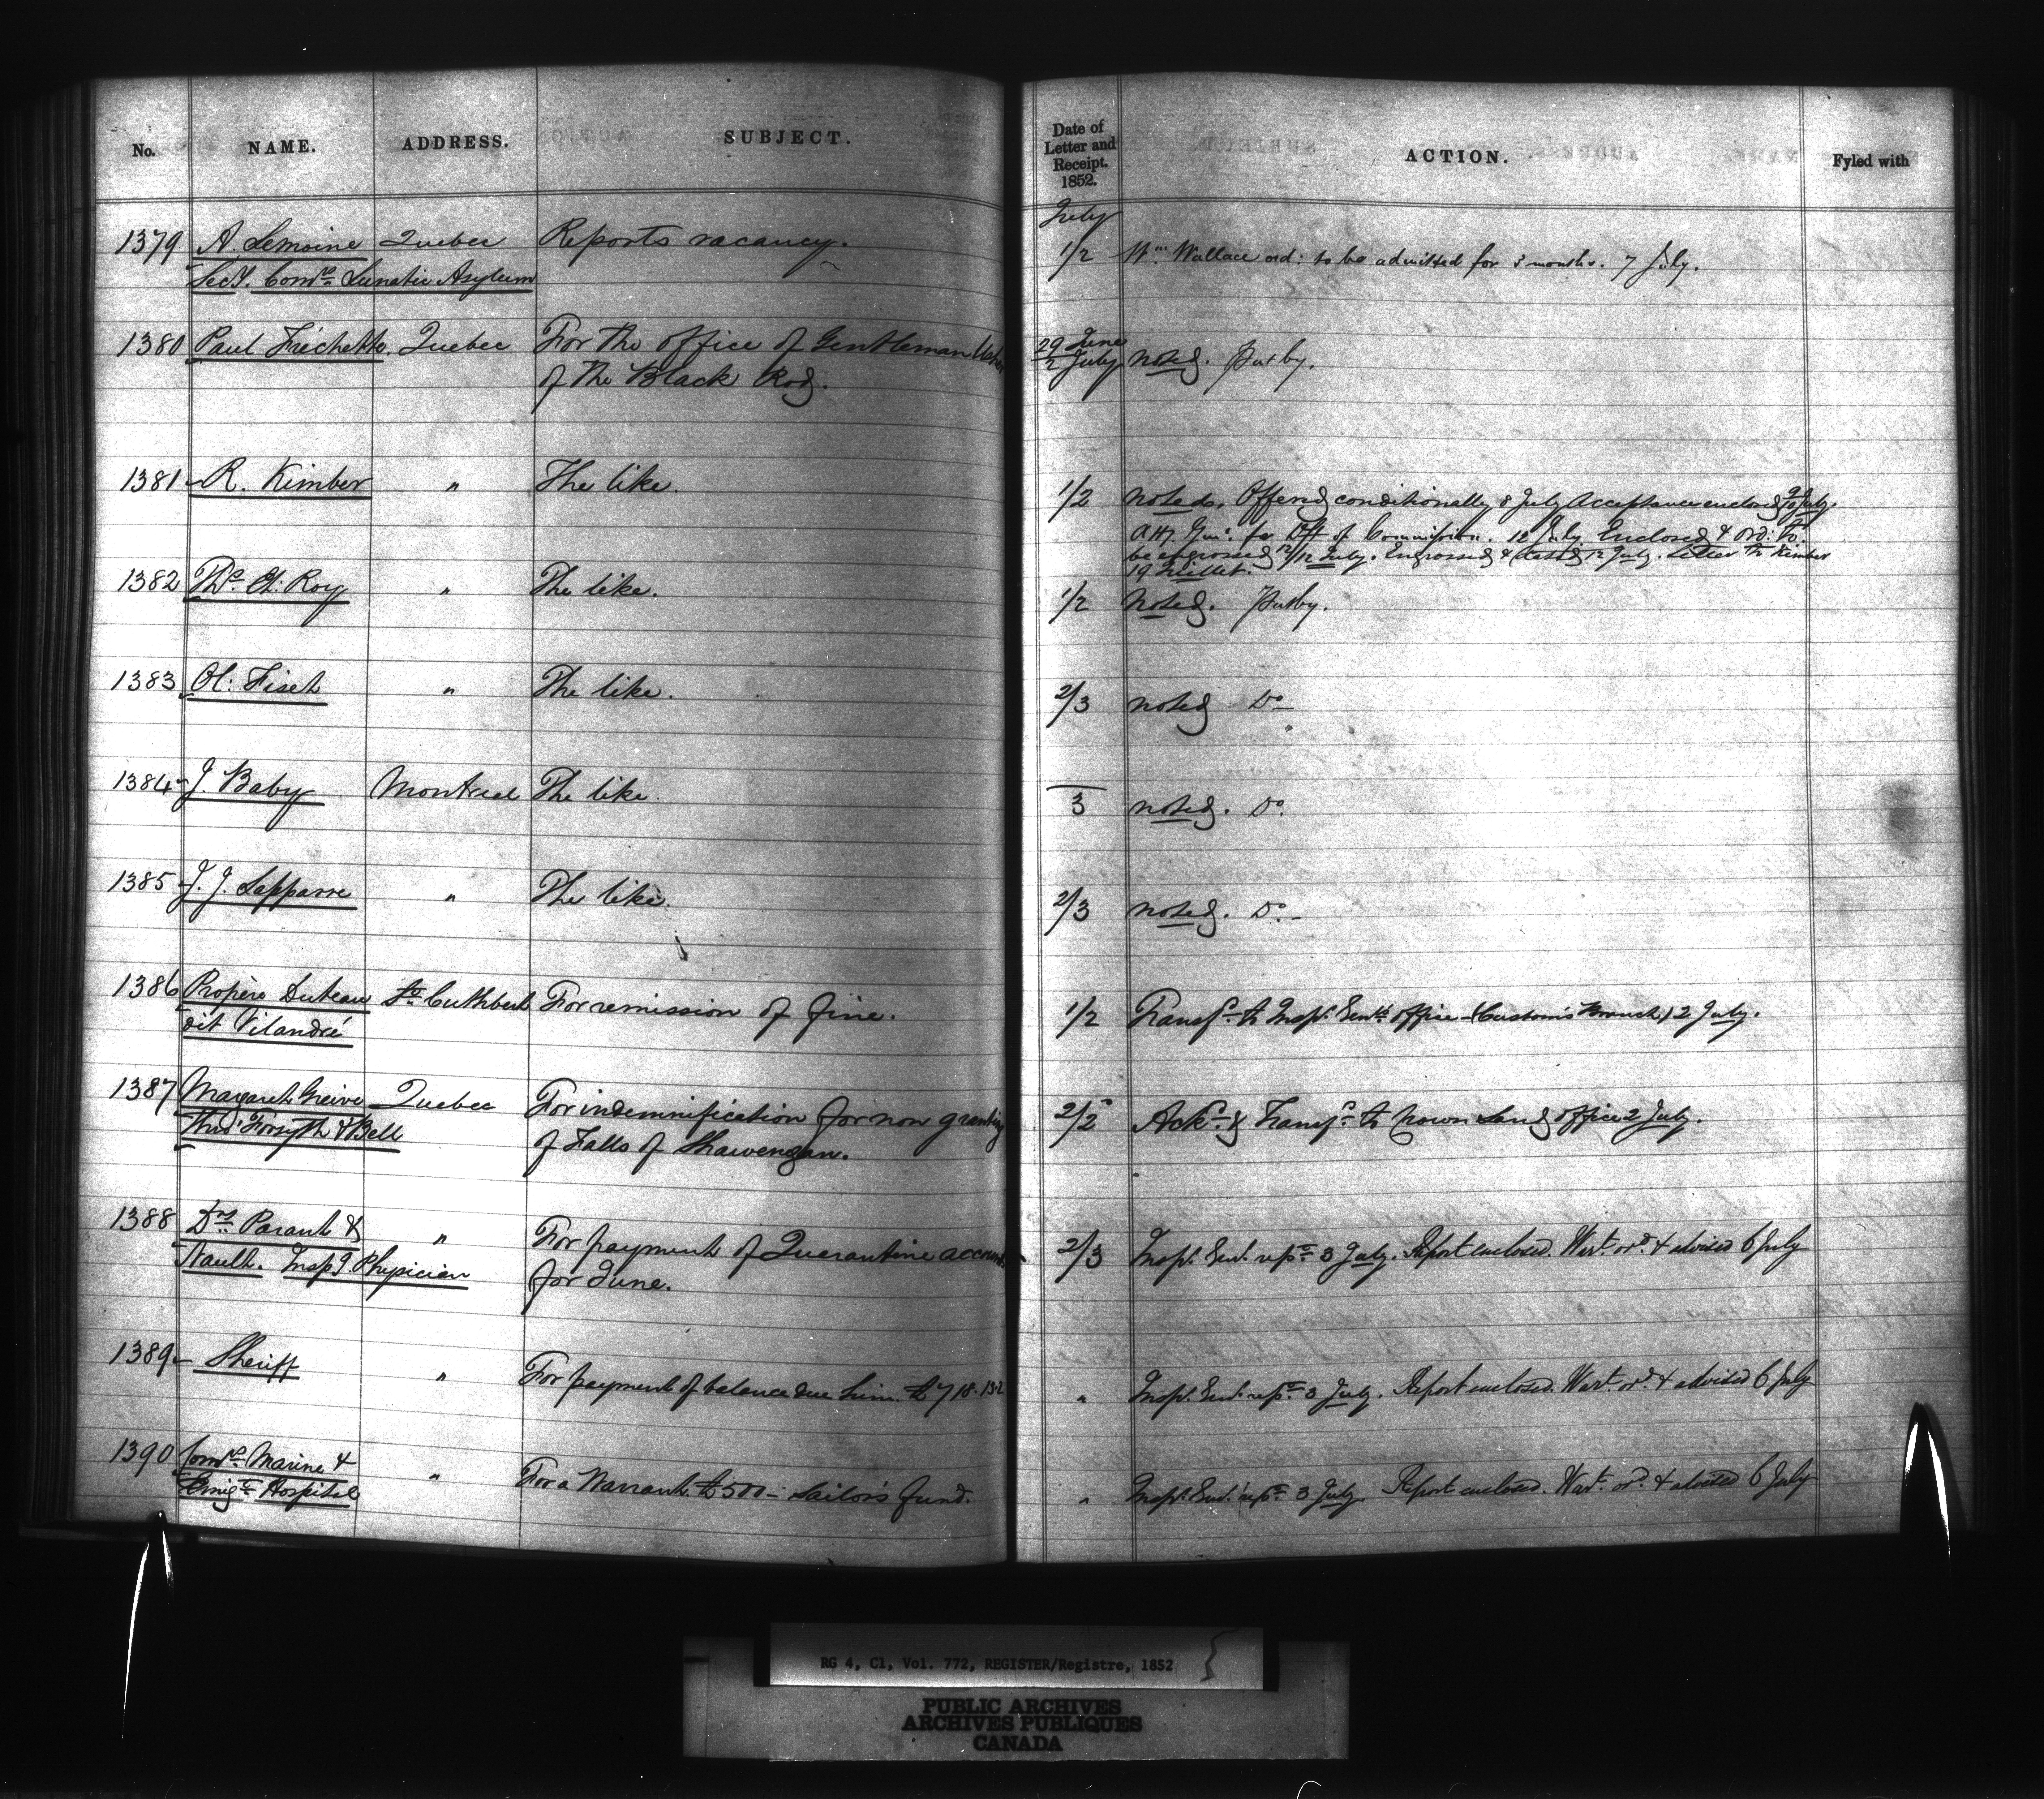 No. NAME. ADDRESS. SUBJECT. Date of Letter and Receipt. 1852. ACTION. Fyled with
July
1379 A. Lemoine Quebec Reports vacancy. 1/2 Wm. Wallace ord: to be admitted for 3 months. 7 July.
Secy. Comrs Lunatic Asylum
1380 Paul Fréchette. Quebec For the office of Gentleman Usher 29 June
of the Black Rod. 2 July noted.
1381 R. Kimber " The like. 1/2 noted. Offered conditionally 8 July Acceptance enclosed 9/10 July.
Atty. Genl. for Dft of Commission. 12 July. Enclosed & ord: to
be engrossed 12/12 July. Engrossed & 12 July. Letter to Kimber
19 Juillet.
1382 Ths. Et: Roy " The like. 1/2 Noted.
1383 Ol: Fiset " The like. 2/3 noted Do
1384 J. Baby Montreal The like. 3 noted. Do.
1385 J. J. Lapparre " The like. 2/3 noted. Do.
1386 Propère Duteau St. Cuthbert For remission of fine. 1/2 Transfd. to Inspr. Genls office (Customs Branch) 2 July.
dit Vilandré
1387 Margaret Greive Quebec For indemnification for non granting 2/2 Ackd. & Transfd. to Crown Land office 2 July.
Forsyth & Bell of Falls of Shawenegan.
1388 Drs. Parant & " For payment of Quarantine account 2/3 Inspr. Genl. 3 July. Report enclosed. Wart. ord. & advised 6 July
Nault. Inspg. Physician for June.
1389 Sheriff " For payment of balance due him. £718.13.2 " Inspr. Genl. 3 July. Report enclosed. Wart. ord. & advised 6 July
1390 Comrs. Marine & " For a Warrant. £500 – Sailor's fund. " Inspr. Genl. 3 July. Report enclosed. Wart. ord. & advised 6 July
Emigt. Hospital
RG 4, C1, Vol. 772, REGISTER/Registre, 1852
PUBLIC ARCHIVES
ARCHIVES PUBLIQUES
CANADA